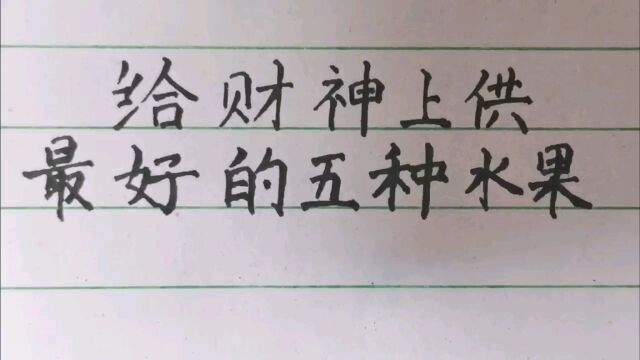 给财神上供
最好的五种水果